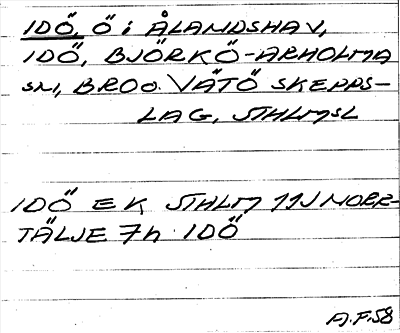 IDÖ, Ö i ÅLANDSHAV,
IDÖ, BJÖRKÖ-ARHOLMA
sn, BRO o. VÄTÖ SKEPPS-
LAG, STHLMSL
IDÖ EK STHLM 11J NORR-
TÄLJE 7h IDÖ
A.P.58